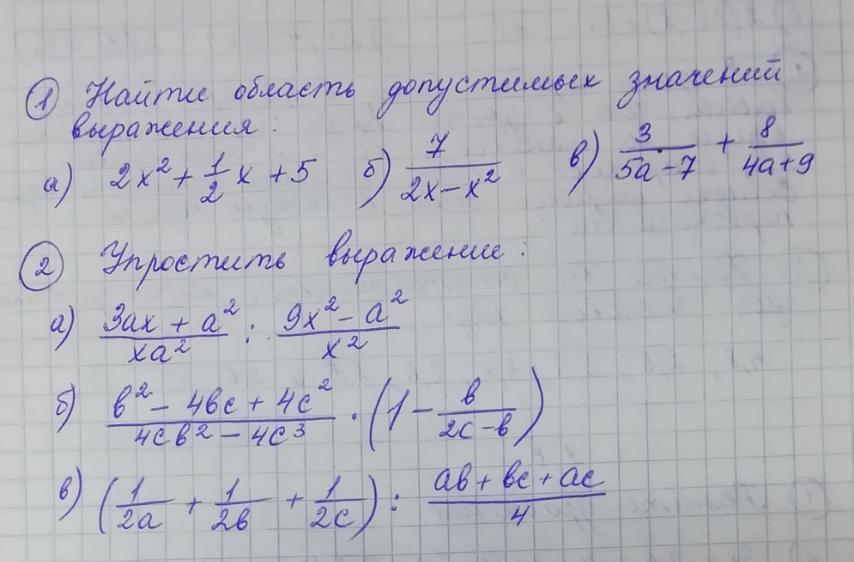 1 Найти область допустимых значений
выражения:
а) 2x² + 1/2 x + 5 б) 7/(2x – x²) в) 3/(5a – 7) + 8/(4a + 9)
2 Упростить выражение:
а) (3ax + a²)/(xa²) : (9x² – a²)/x²
б) (b² – 4bc + 4c²)/(4cb² – 4c³) · (1 – b/(2c – b))
в) (1/(2a) + 1/(2b) + 1/(2c)) : (ab + bc + ac)/4